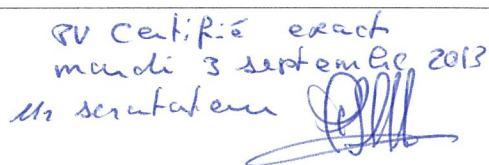 PV Certifié exact
mardi 3 septembre 2013
Un scrutateur